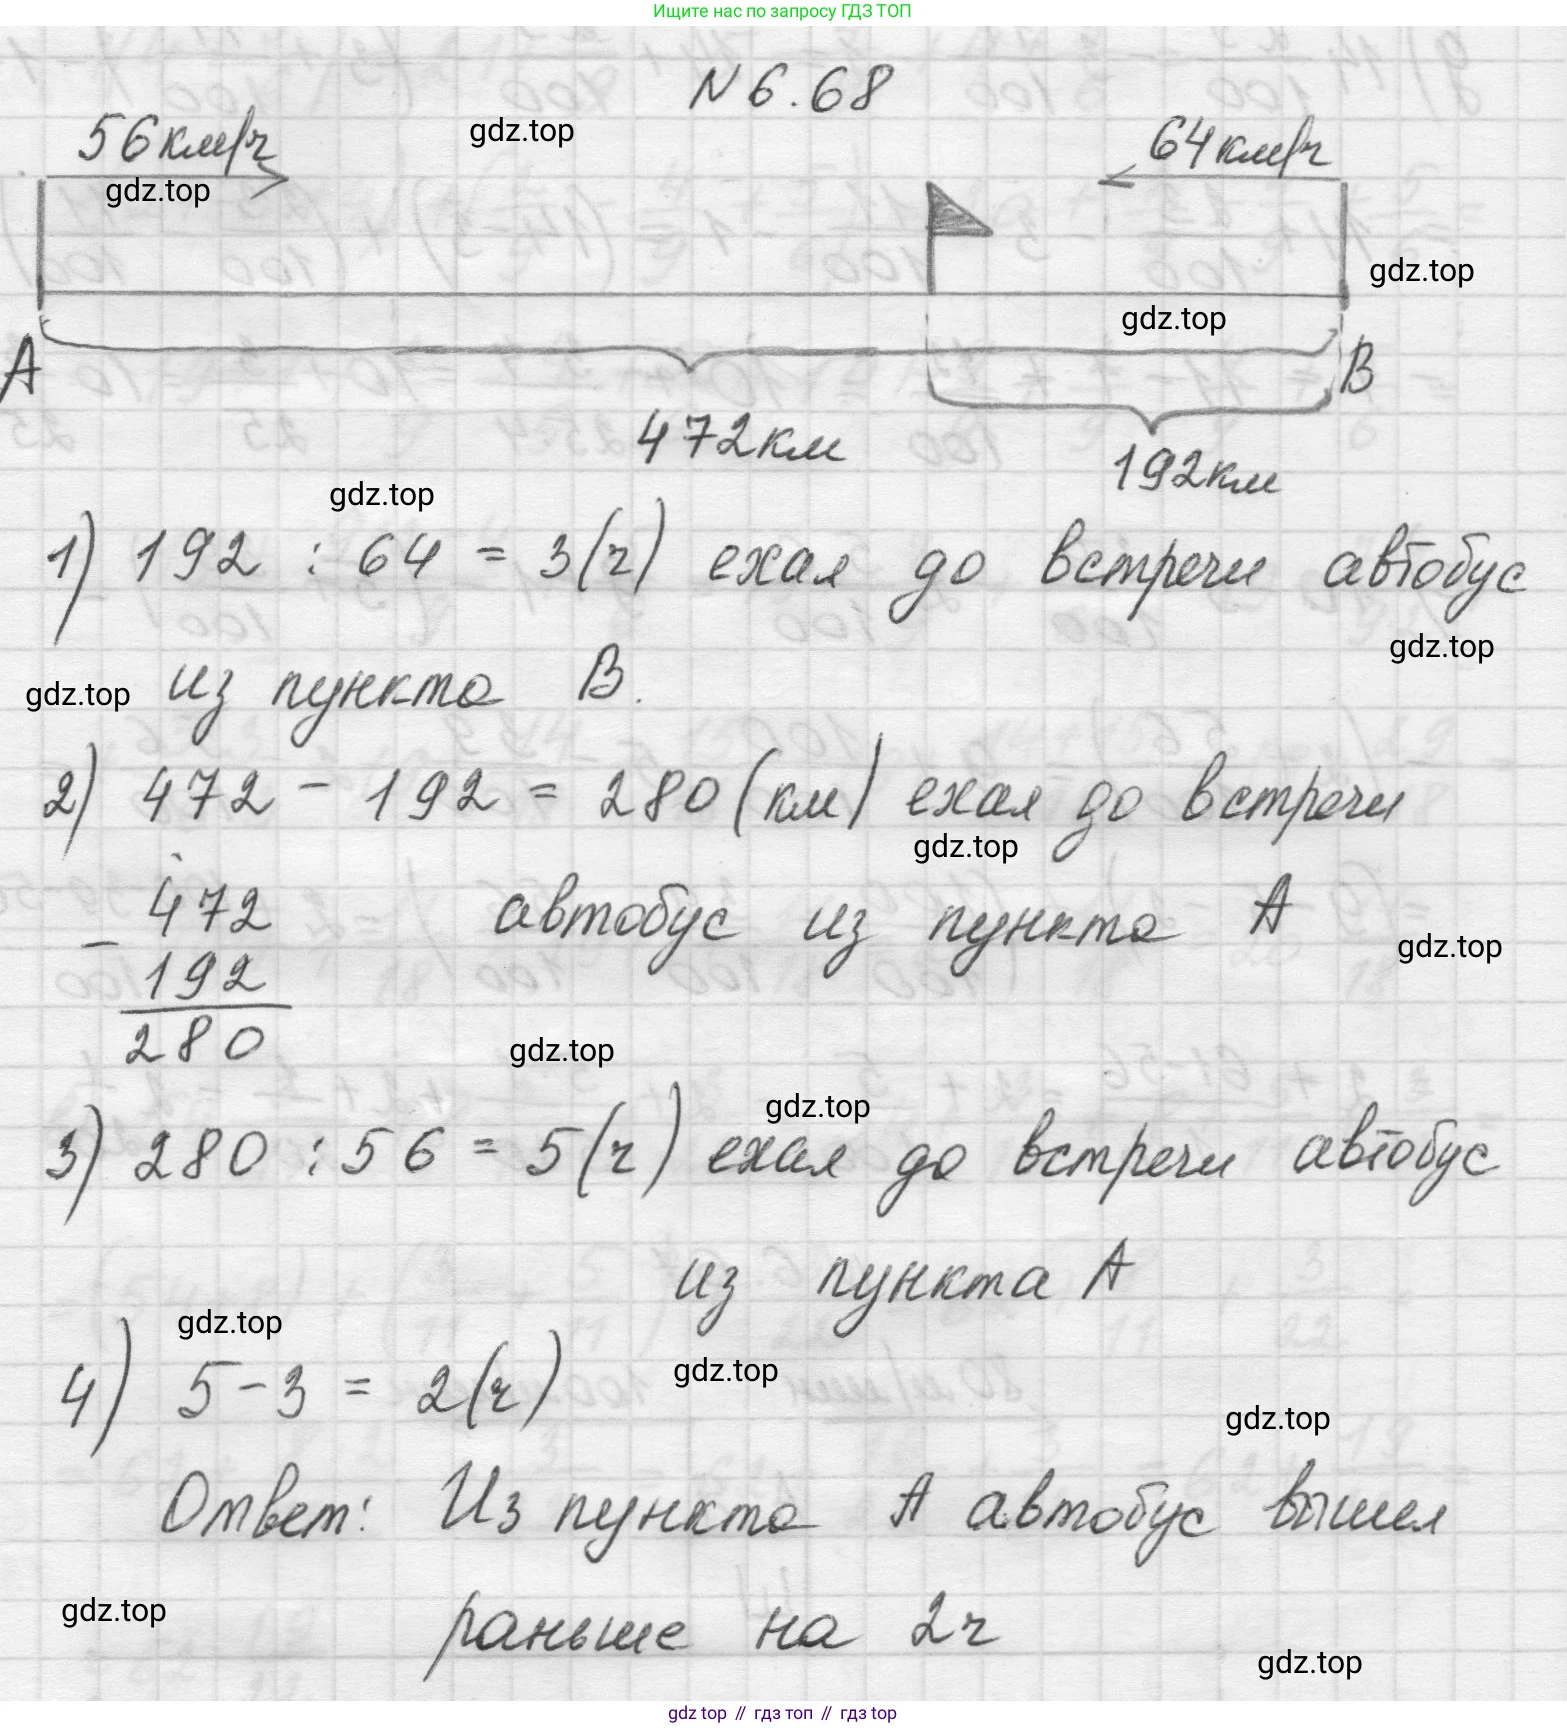 Ищите нас по запросу ГДЗ ТОП
N 6.68
56км/ч
64км/ч
gdz.top
gdz.top
gdz.top
gdz.top
A
B
472км
192км
gdz.top
1) 192 : 64 = 3(ч) ехал до встречи автобус
gdz.top
gdz.top
из пункта B.
2) 472 - 192 = 280 (км) ехал до встречи
gdz.top
- 472
автобус из пункта A
gdz.top
192
280
gdz.top
gdz.top
3) 280 : 56 = 5(ч) ехал до встречи автобус
из пункта A
gdz.top
4) 5-3 = 2(ч)
gdz.top
gdz.top
Ответ: Из пункта A автобус вышел
gdz.top
раньше на 2ч
gdz.top
gdz top // гдз топ // гдз top